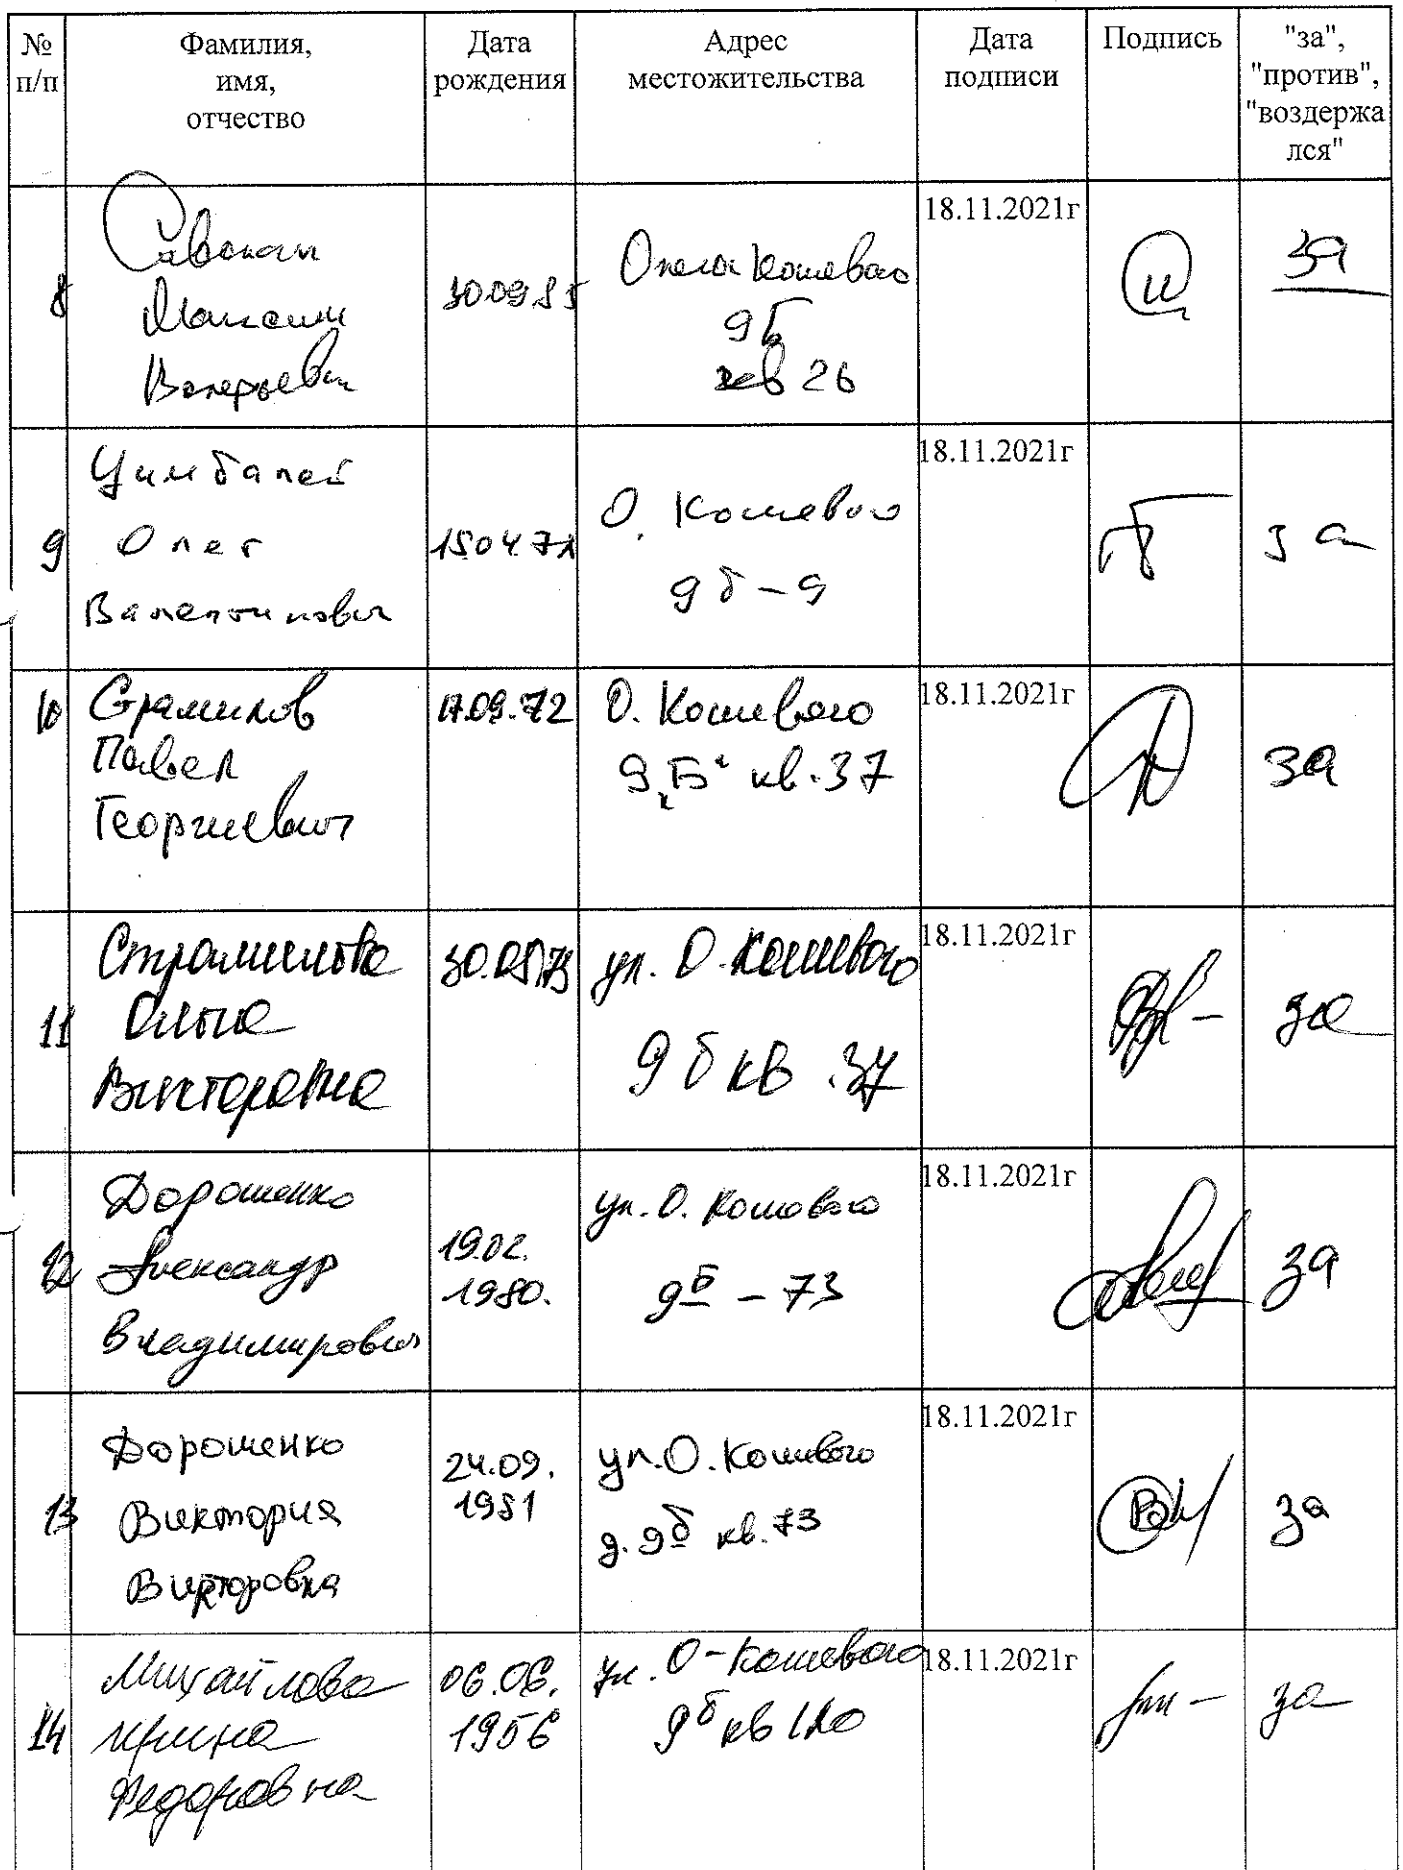 № п/п
Фамилия, имя, отчество
Дата рождения
Адрес местожительства
Дата подписи
Подпись
"за", "против", "воздержался"
8
Максим
Валерьевич
30.09.85
Олега Кошевого
9Б
кв 26
18.11.2021г
за
9
Цимбалей
Олег
Валентинович
О. Кошевого
9б-9
18.11.2021г
за
10
Страмилов
Павел
Георгиевич
17.09.72
О. Кошевого
9 „Б“ кв.37
18.11.2021г
за
11
Страмилова
Ольга
Викторовна
ул. О. Кошевого
9б кв.37
18.11.2021г
за
12
Дорошенко
Александр
Владимирович
19.02.
1980.
ул. О. Кошевого
9Б – 73
18.11.2021г
за
13
Дорошенко
Виктория
Викторовна
24.09.
1981
ул. О. Кошевого
д. 9б кв. 73
18.11.2021г
за
14
Михайлова
Ирина
Федоровна
06.06.
1956
ул. О-Кошевого
9б кв
18.11.2021г
за